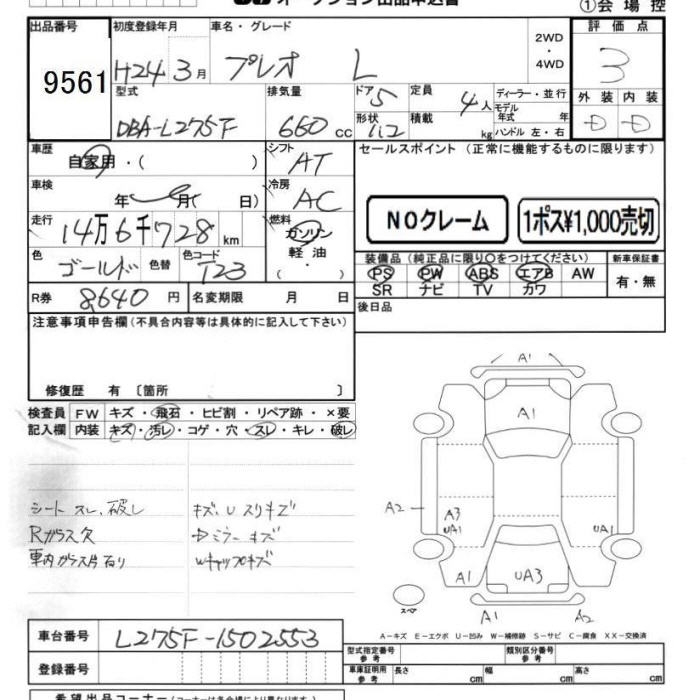 オークション出品申込書
①会場控
出品番号 初度登録年月 車名・グレード 2WD ・ 4WD 評価点
9561 H24年3月 プレオ L 3
型式 排気量 ドア 5 定員 4人 ディーラー・並行 外装 内装
DBA-L275F 660cc 形状 積載 kg モデル年式 年 D D
ハンドル 左・右
車歴 自家用・( ) シフト AT セールスポイント (正常に機能するものに限ります)
車検 年 月( 日) 冷房 AC NOクレーム 1ポス¥1,000売切
走行 14万6千728km 燃料 ガソリン 軽油 ・( )
色 ゴールド 色替 色コード T23 装備品 (純正品に限り○をつけてください) 新車保証書
PS PW ABS エアB AW 有・無
SR ナビ TV カワ
R券 8,640円 名変期限 月 日 後日品
注意事項申告欄(不具合内容等は具体的に記入して下さい)
修復歴 有 〔箇所 〕
検査員 FW キズ・飛石・ヒビ割・リペア跡・×要
記入欄 内装 キズ・汚レ・コゲ・穴・スレ・キレ・破レ
シート スレ、破し キズ、U スリキズ
Rガラス欠 中ミラー キズ
車内ガラス片有り Wキャップキズ
A1
A1
A2
A3
UA1
UA1
A1
UA3
A1
A2
スペア
A-キズ E-エクボ U-凹み W-補修跡 S-サビ C-腐食 XX-交換済
車台番号 L275F-1502553
登録番号
型式指定番号 参考 類別区分番号 参考
車庫証明用 参考 長さ cm 幅 cm 高さ cm
希望出品コーナー(コーナーは各会場により異なります)